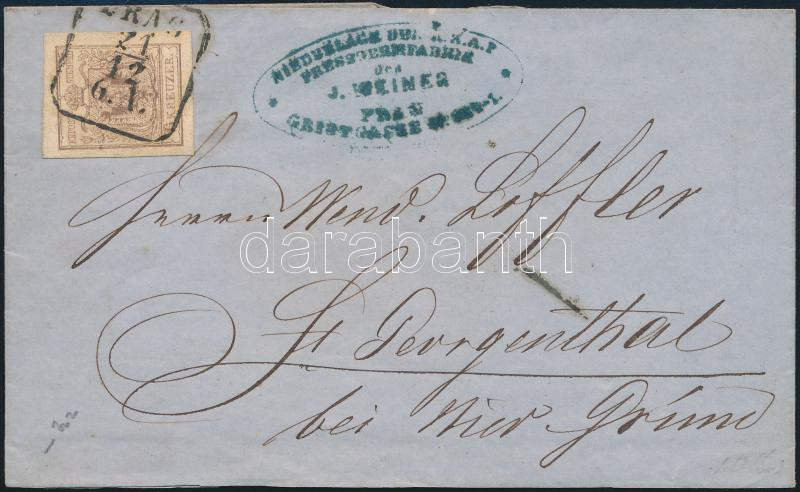 PRAG
21
12
6. A.
KREUZER.
NIEDERLAGE DER K.K.A.P
PRESSGERMFABRIK
des
J. WEINER
PRAG
GEISTGASSE
Herrn Wend. Löffler
St Georgenthal
bei Nied Gründ
darabanth